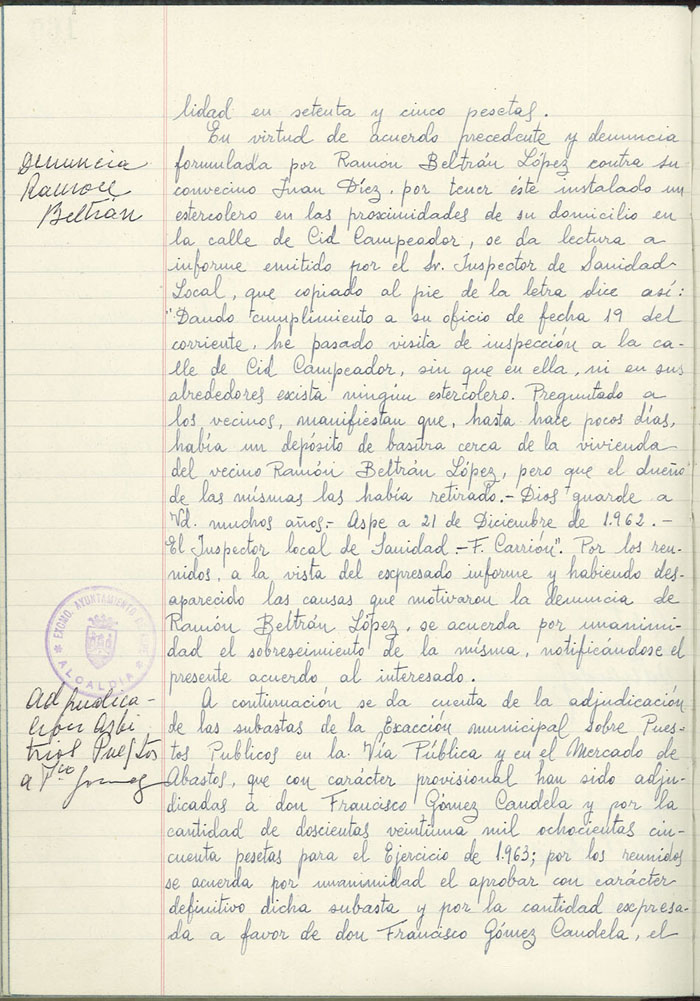 lidad en setenta y cinco pesetas.
En virtud de acuerdo precedente y denuncia
formulada por Ramón Beltrán López contra su
convecino Juan Díez, por tener éste instalado un
estercolero en las proximidades de su domicilio en
la calle de Cid Campeador, se da lectura a
informe emitido por el Sr. Inspector de Sanidad
Local, que copiado al pie de la letra dice así:
"Dando cumplimiento a su oficio de fecha 19 del
corriente, he pasado visita de inspección a la ca-
lle de Cid Campeador, sin que en ella, ni en sus
abrededores exista ningún estercolero. Preguntado a
los vecinos, manifiestan que, hasta hace pocos días,
había un depósito de basura cerca de la vivienda
del vecino Ramón Beltrán López, pero que el dueño
de las mismas las había retirado.- Dios guarde a
Vd. muchos años.- Aspe a 21 de Diciembre de 1.962.-
El Inspector local de Sanidad.- F. Carrión". Por los reu-
nidos, a la vista del expresado informe y habiendo des-
aparecido las causas que motivaron la denuncia de
Ramón Beltrán López, se acuerda por unanimi-
dad el sobreseimiento de la misma, notificándose el
presente acuerdo al interesado.
A continuación se da cuenta de la adjudicación
de las subastas de la Exacción municipal sobre Pues-
tos Publicos en la Vía Pública y en el Mercado de
Abastos, que con carácter provisional han sido adju-
dicadas a don Francisco Gómez Candela y por la
cantidad de doscientas veintiuna mil ochocientas cin-
cuenta pesetas para el Ejercicio de 1.963; por los reunidos
se acuerda por unanimidad el aprobar con carácter
definitivo dicha subasta y por la cantidad expresa-
da a favor de don Francisco Gómez Candela, el
Denuncia
Ramón
Beltrán
EXCMO. AYUNTAMIENTO DE ASPE
ALCALDIA
Adjudica-
cion Arbi
trios Puestos
a Fco Gomez